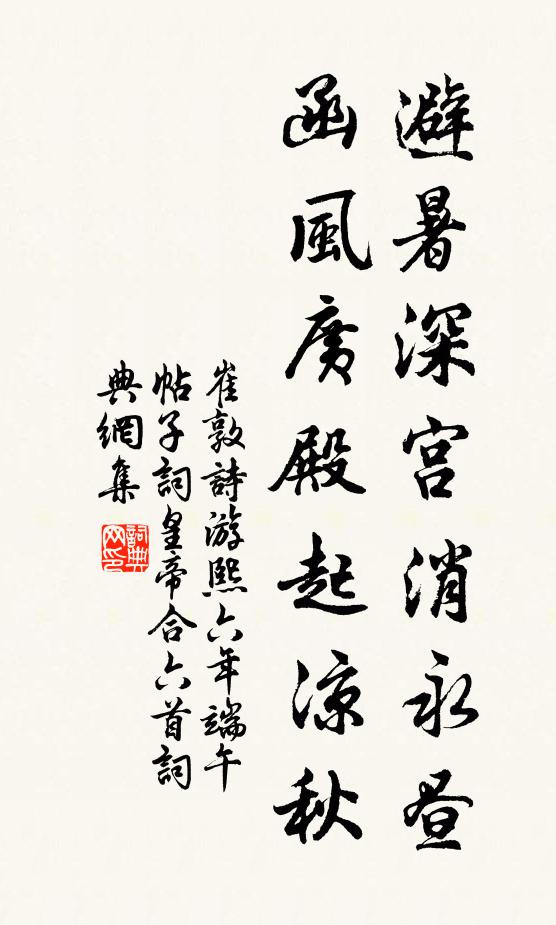 避暑深宮消永昼
函風廣殿起涼秋
崔敦詩游熙六年端午
帖子詞皇帝合六首詞
典網集
詞典
网印